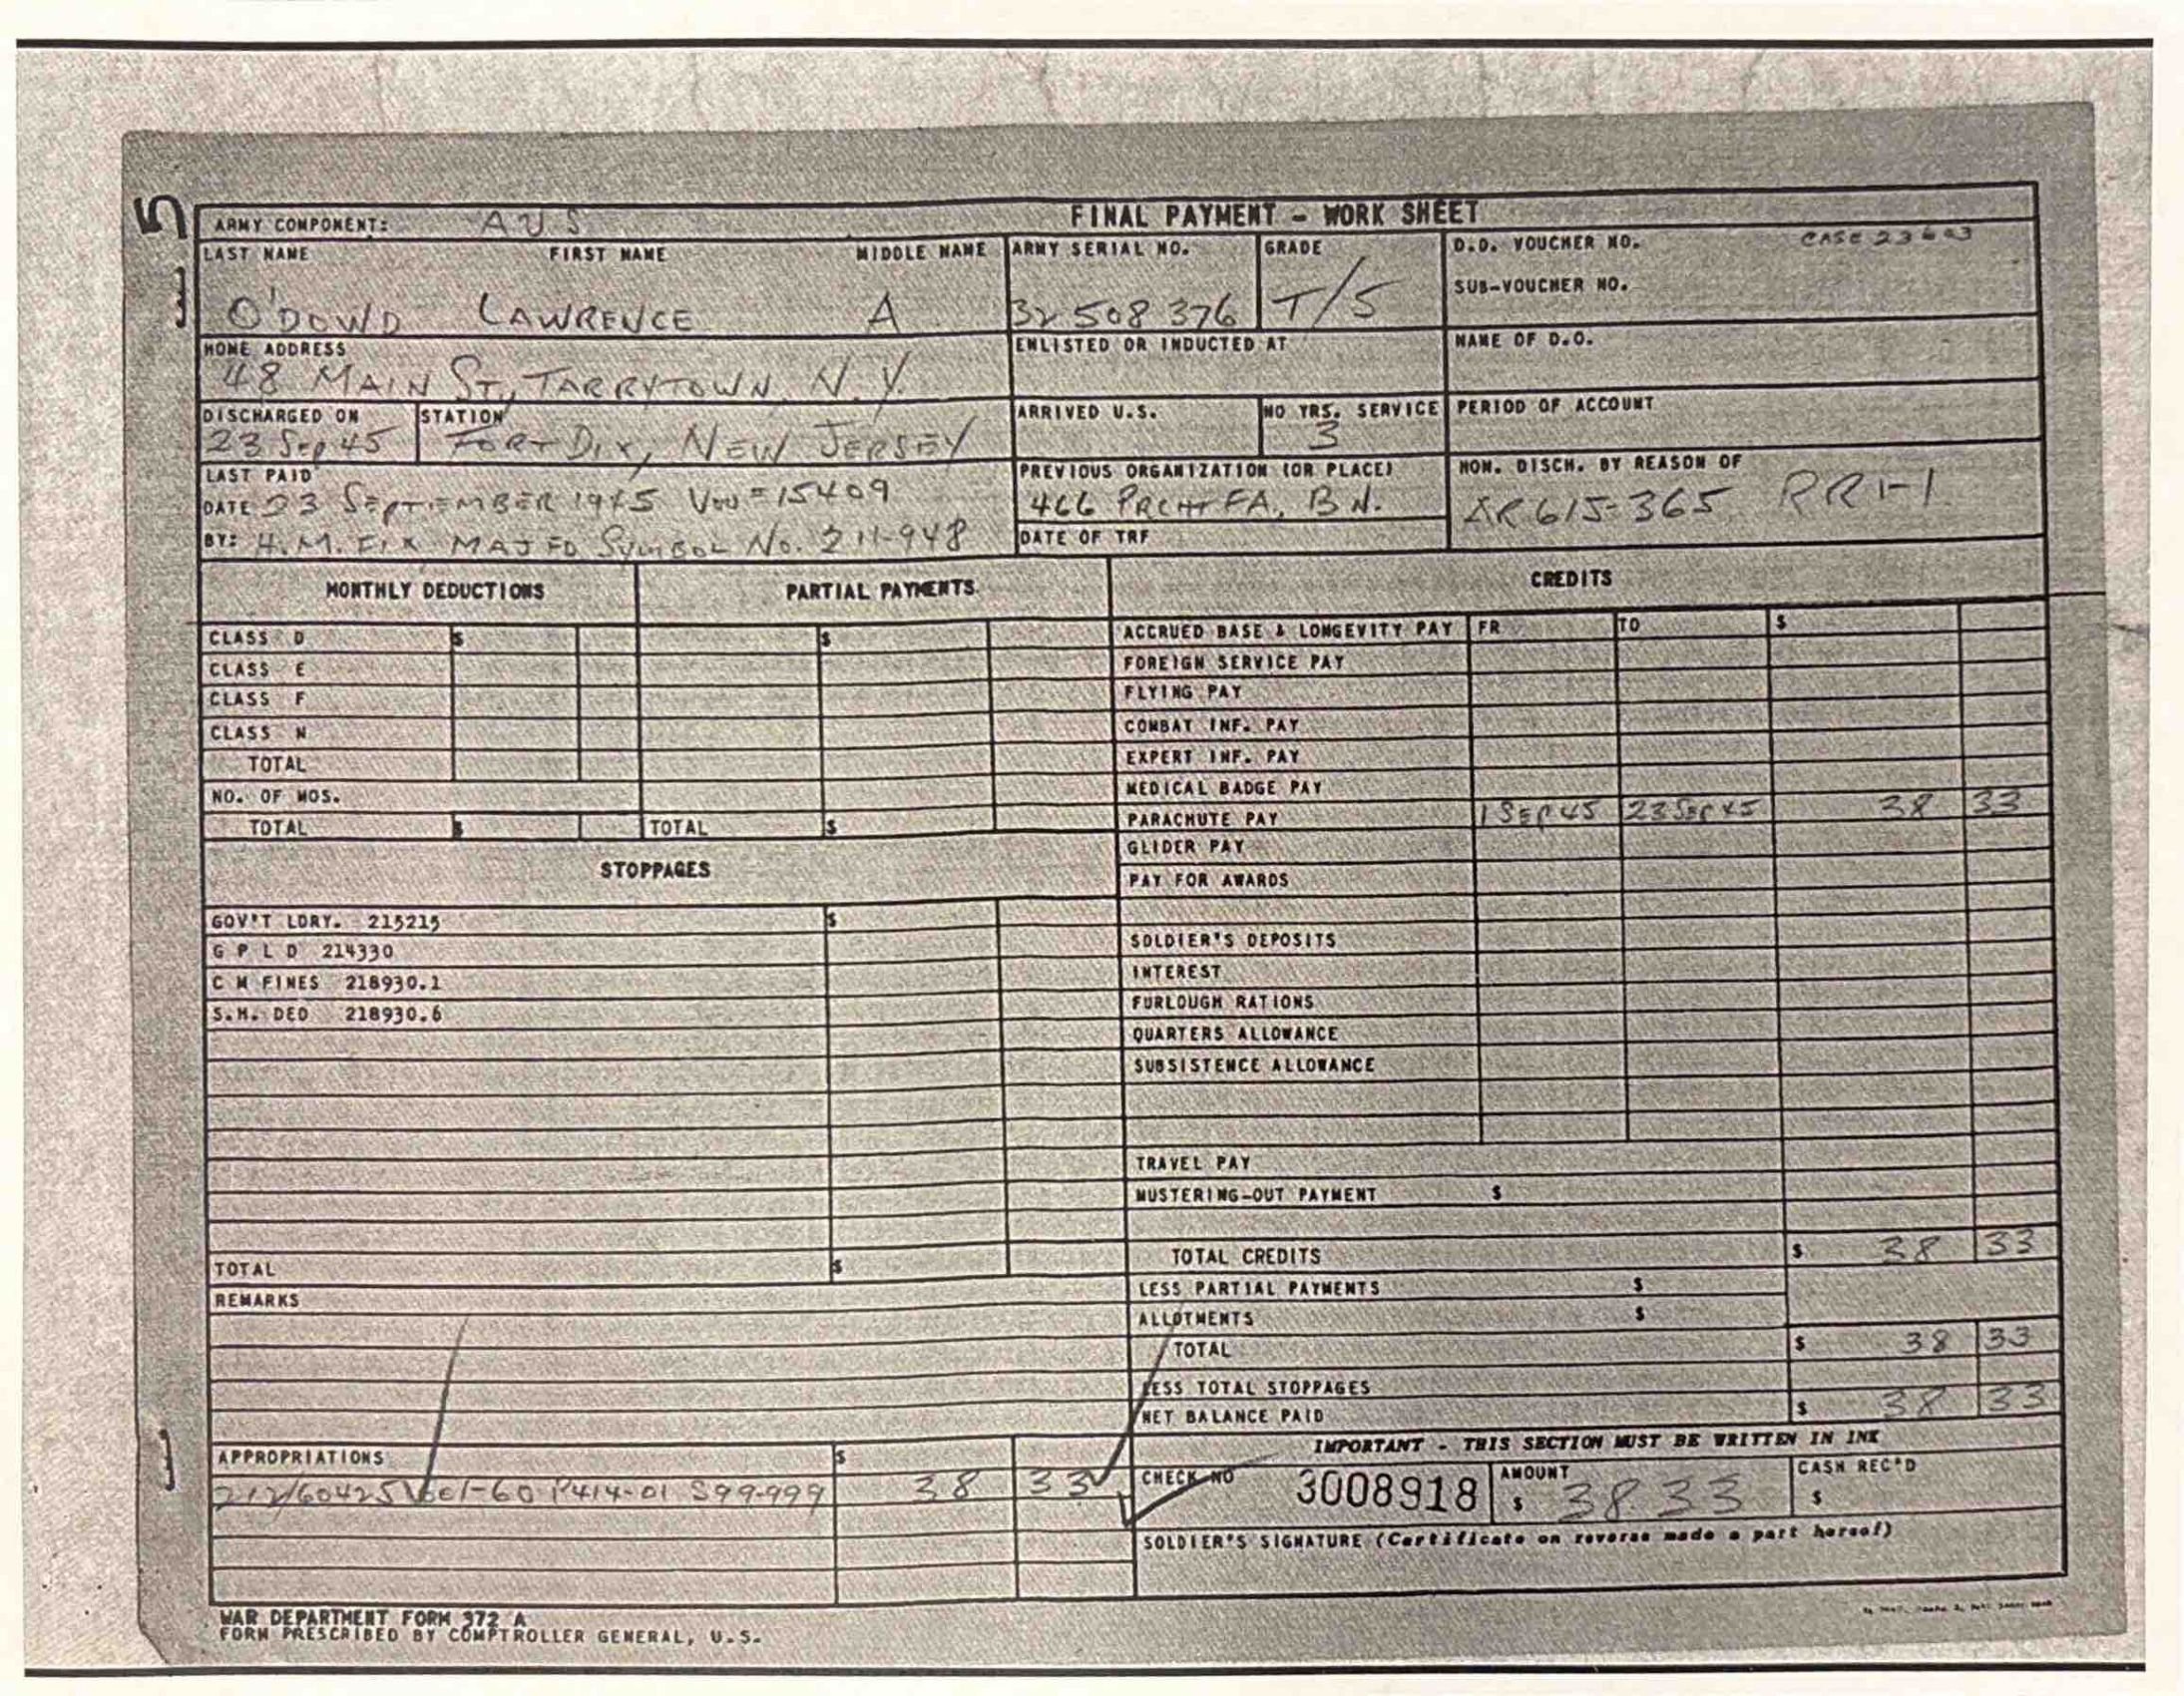 5
FINAL PAYMENT - WORK SHEET
ARMY COMPONENT: AUS
LAST NAME FIRST NAME MIDDLE NAME
O'DOWD LAWRENCE A
ARMY SERIAL NO.
32 508 376
GRADE
T/5
D.O. VOUCHER NO. CASE 23603
SUB-VOUCHER NO.
HOME ADDRESS
48 MAIN ST., TARRYTOWN, N.Y.
ENLISTED OR INDUCTED AT
NAME OF D.O.
DISCHARGED ON
23 Sep 45
STATION
FORT DIX, NEW JERSEY
ARRIVED U.S.
NO YRS. SERVICE
3
PERIOD OF ACCOUNT
LAST PAID
DATE 23 SEPTEMBER 1945 VOU = 15409
BY: H.M. FIX MAJ FD SYMBOL No. 211-948
PREVIOUS ORGANIZATION (OR PLACE)
466 PRCHT FA. BN.
DATE OF TRF
HON. DISCH. BY REASON OF
AR 615-365 RR1-1
MONTHLY DEDUCTIONS PARTIAL PAYMENTS
CLASS D $ $
CLASS E
CLASS F
CLASS N
TOTAL
NO. OF MOS.
TOTAL $ TOTAL $
STOPPAGES
GOV'T LDRY. 215215 $
G P L D 214330
C M FINES 218930.1
S.H. DED 218930.6
TOTAL $
REMARKS
APPROPRIATIONS $
S99-999 38 33
CREDITS
ACCRUED BASE & LONGEVITY PAY FR TO $
FOREIGN SERVICE PAY
FLYING PAY
COMBAT INF. PAY
EXPERT INF. PAY
MEDICAL BADGE PAY
PARACHUTE PAY 1 SEP 45 23 SEP 45 38 33
GLIDER PAY
PAY FOR AWARDS
SOLDIER'S DEPOSITS
INTEREST
FURLOUGH RATIONS
QUARTERS ALLOWANCE
SUBSISTENCE ALLOWANCE
TRAVEL PAY
MUSTERING-OUT PAYMENT $
TOTAL CREDITS $ 38 33
LESS PARTIAL PAYMENTS $
ALLOTMENTS $
TOTAL $ 38 33
LESS TOTAL STOPPAGES
NET BALANCE PAID $ 38 33
IMPORTANT - THIS SECTION MUST BE WRITTEN IN INK
CHECK NO 3008918
AMOUNT
$ 38.33
CASH REC'D
$
SOLDIER'S SIGNATURE (Certificate on reverse made a part hereof)
WAR DEPARTMENT FORM 372 A
FORM PRESCRIBED BY COMPTROLLER GENERAL, U.S.